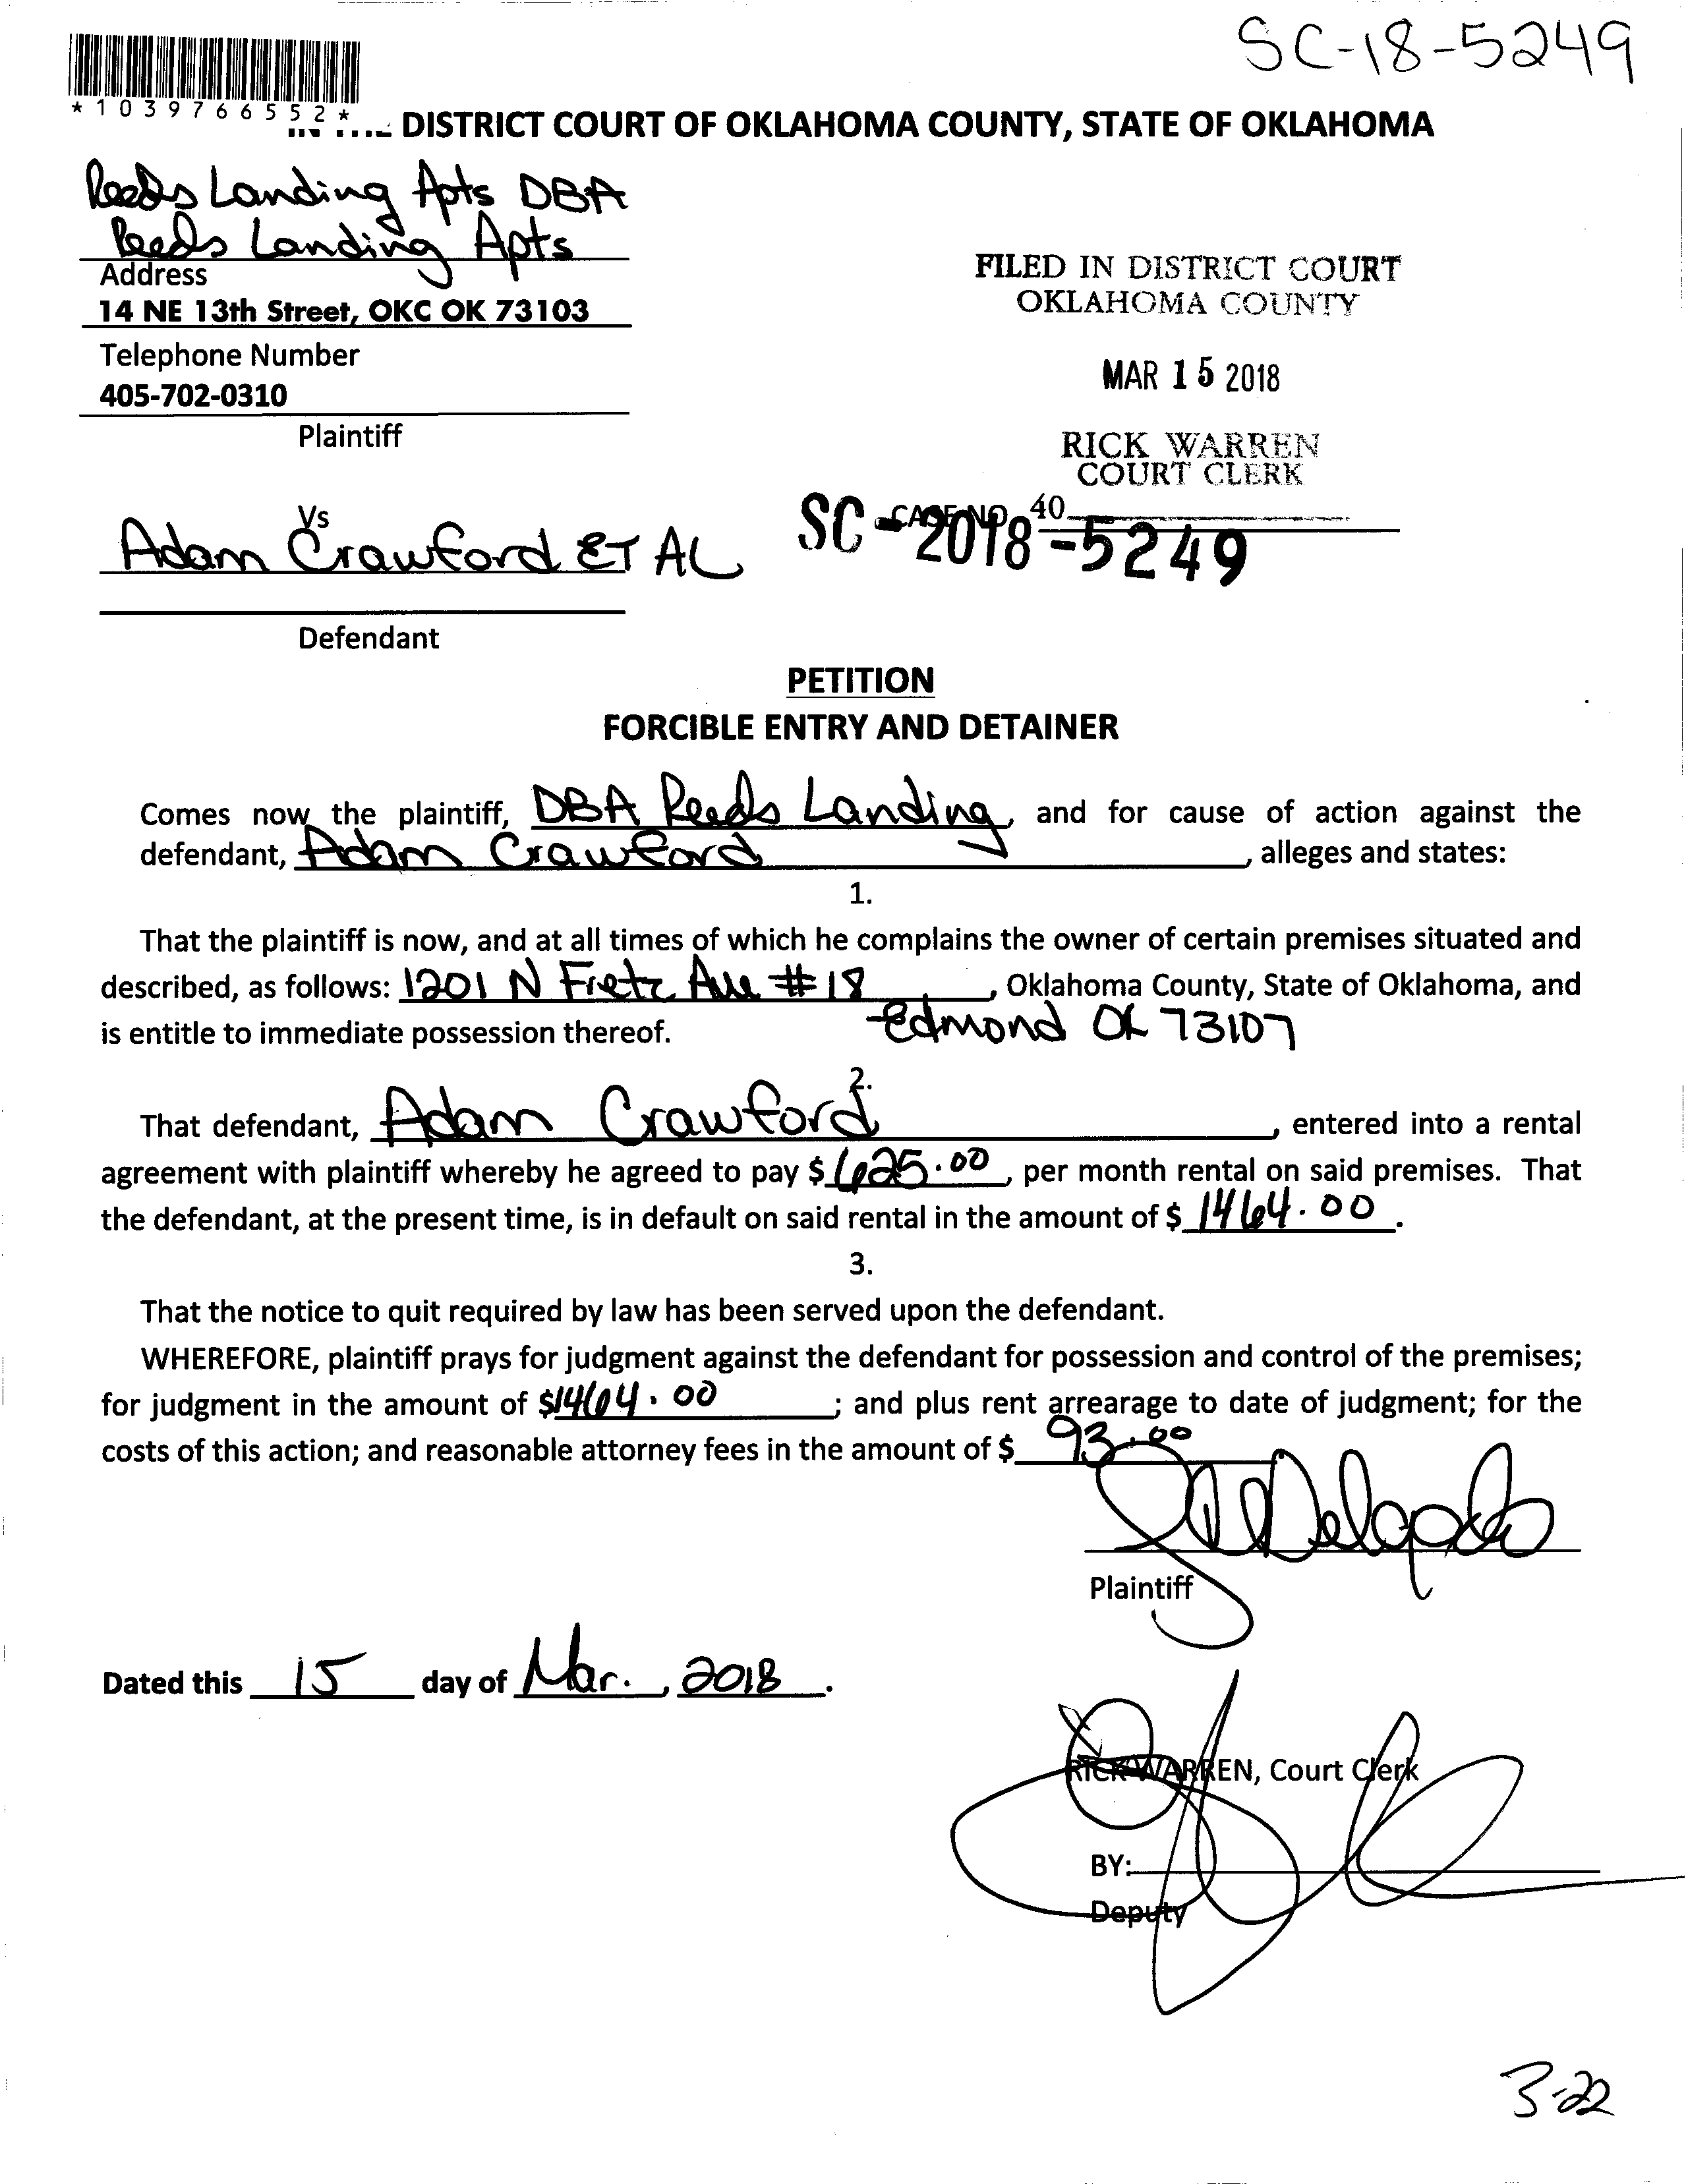 SC-18-5249
*1039766552*
DISTRICT COURT OF OKLAHOMA COUNTY, STATE OF OKLAHOMA
Reeds Landing Apts DBA
Reeds Landing Apts
Address
14 NE 13th Street, OKC OK 73103
Telephone Number
405-702-0310
Plaintiff
FILED IN DISTRICT COURT
OKLAHOMA COUNTY
MAR 15 2018
RICK WARREN
COURT CLERK
40
Vs
Adam Crawford ET AL
CASE NO.
SC-2018-5249
Defendant
PETITION
FORCIBLE ENTRY AND DETAINER
Comes now the plaintiff, DBA Reeds Landing, and for cause of action against the
defendant, Adam Crawford, alleges and states:
1.
That the plaintiff is now, and at all times of which he complains the owner of certain premises situated and
described, as follows: 1201 N Fretz Ave #18, Oklahoma County, State of Oklahoma, and
is entitle to immediate possession thereof. Edmond OK 73107
2.
That defendant, Adam Crawford, entered into a rental
agreement with plaintiff whereby he agreed to pay $625.00, per month rental on said premises. That
the defendant, at the present time, is in default on said rental in the amount of $1464.00.
3.
That the notice to quit required by law has been served upon the defendant.
WHEREFORE, plaintiff prays for judgment against the defendant for possession and control of the premises;
for judgment in the amount of $1464.00; and plus rent arrearage to date of judgment; for the
costs of this action; and reasonable attorney fees in the amount of $93.00
Delgado
Plaintiff
Dated this 15 day of Mar., 2018.
RICK WARREN, Court Clerk
BY:
Deputy
3-22